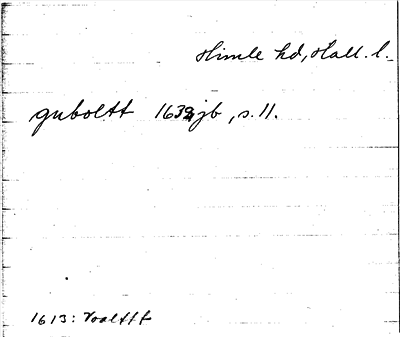 Himle hd, Hall. l.
guboltt 1639 jb, s. 11.
1613: Voalttt